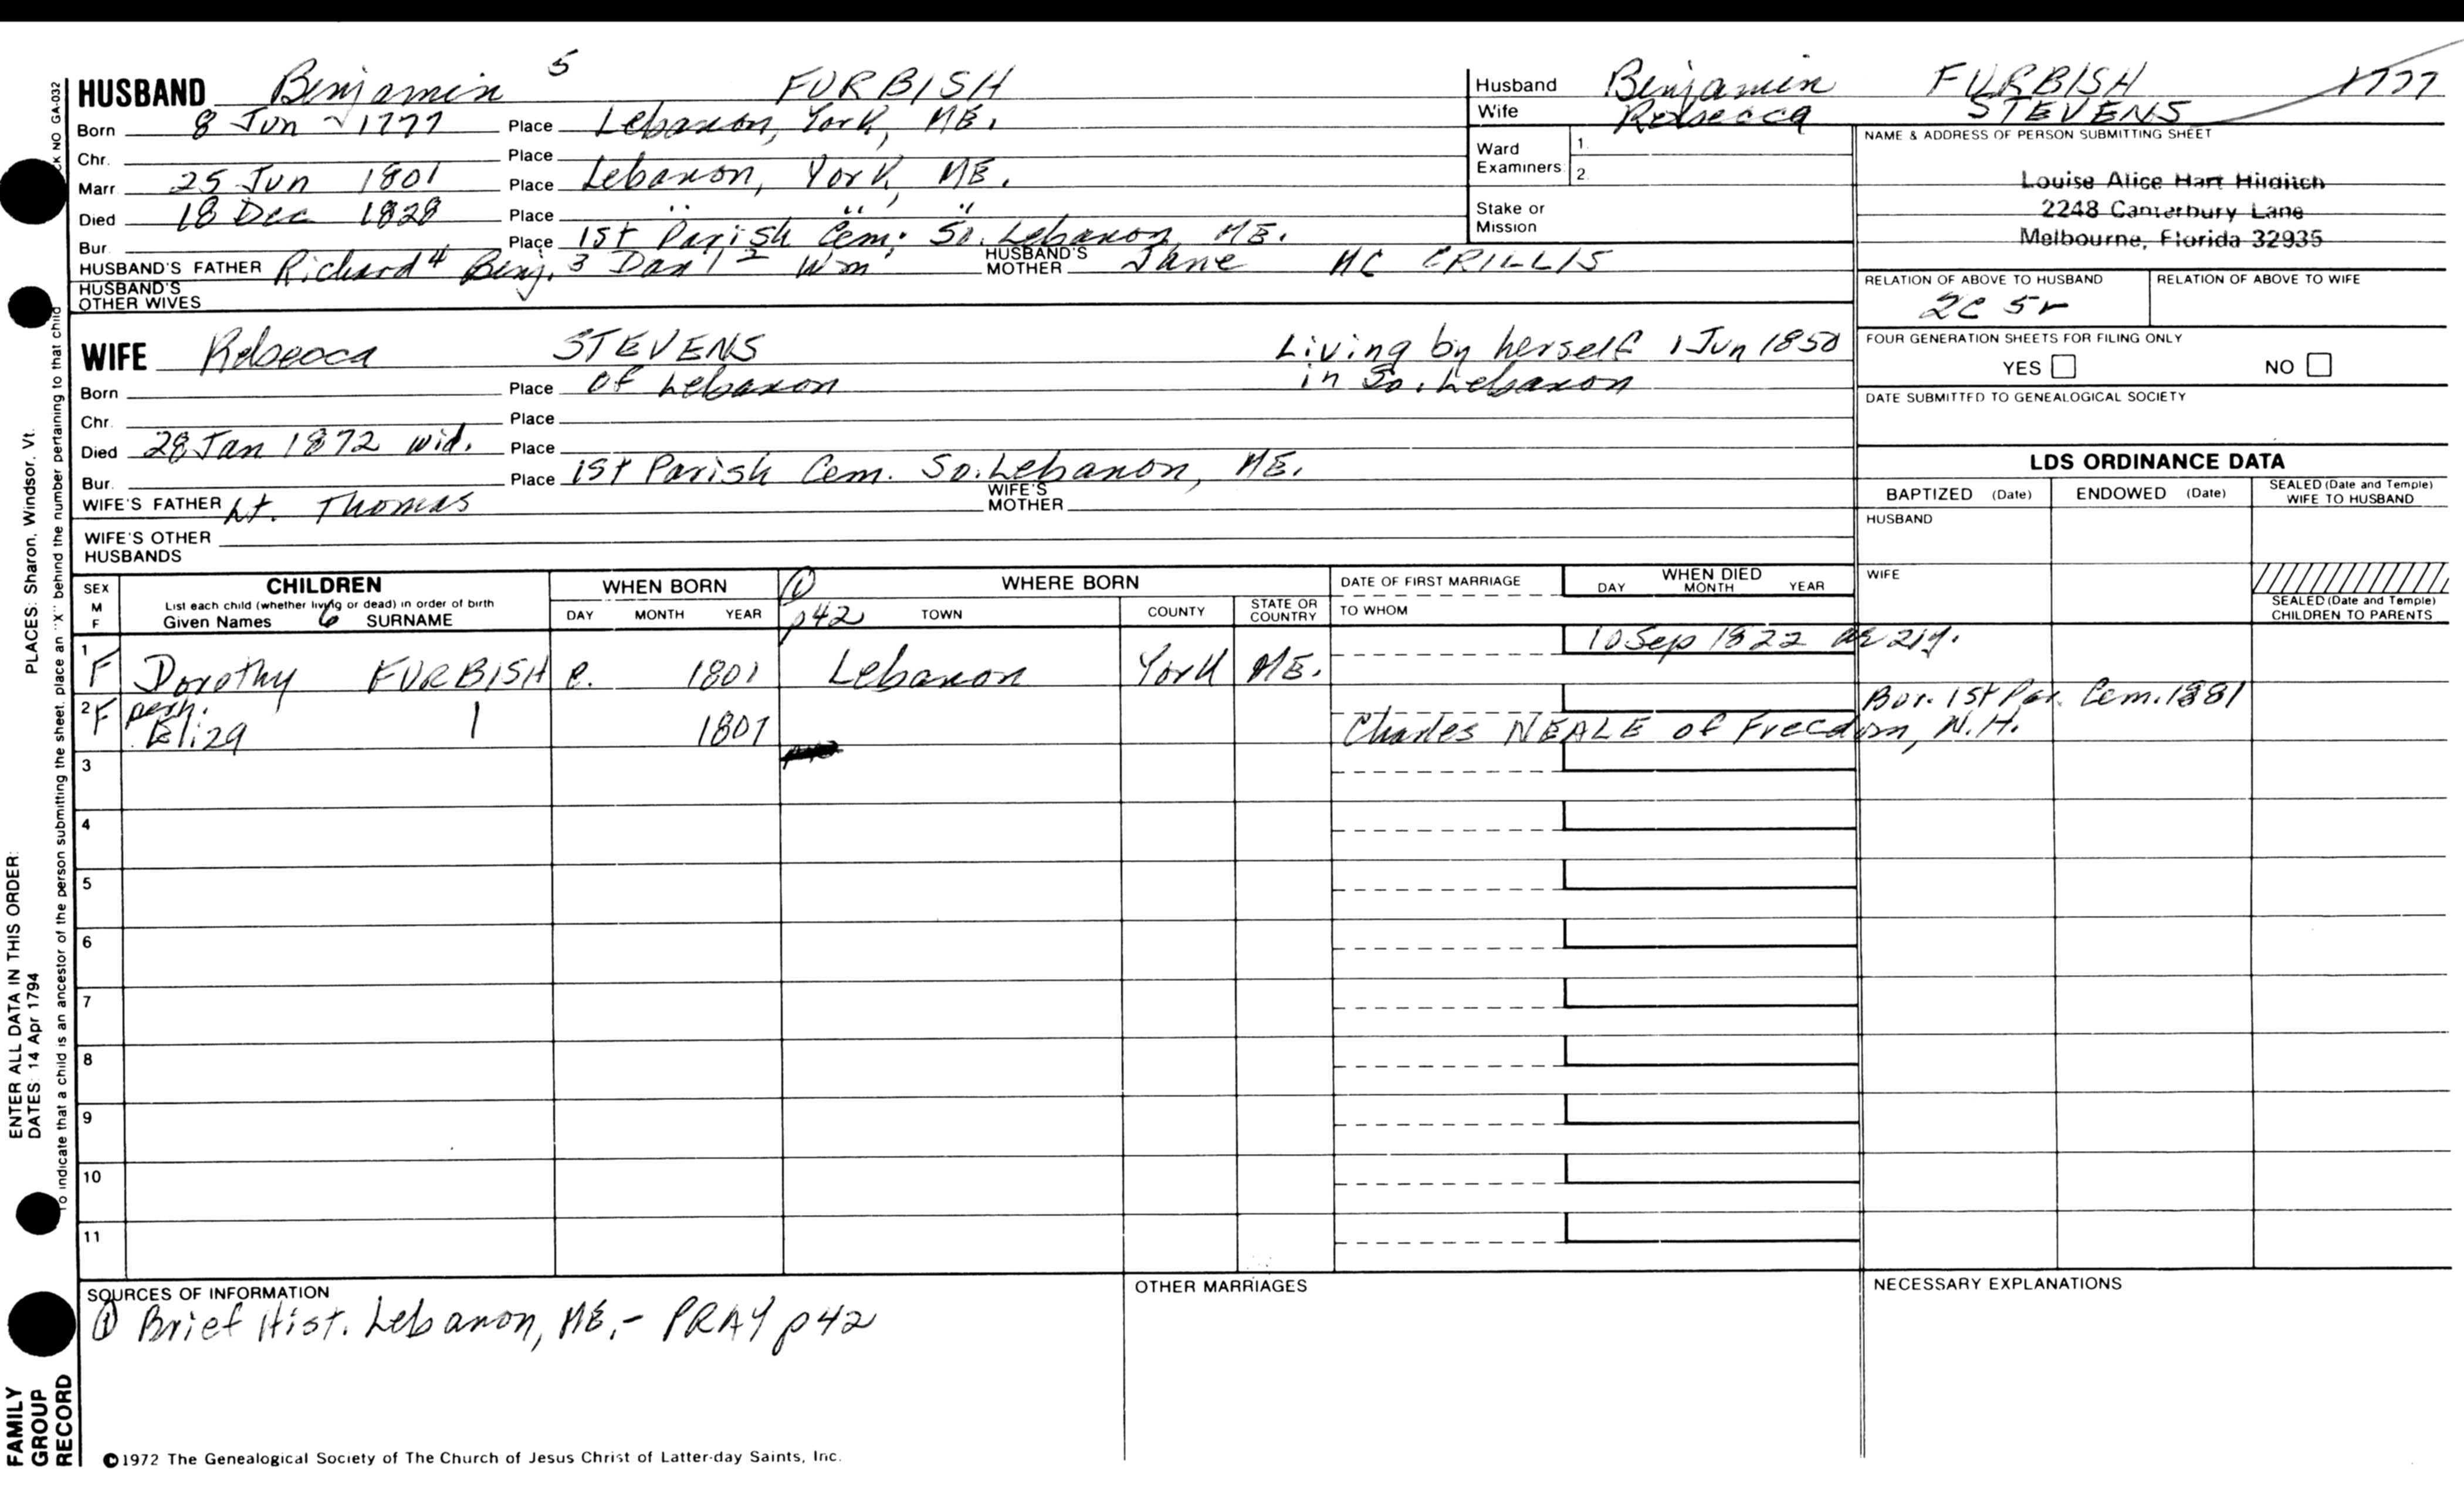 HUSBAND Benjamin 5 FURBISH
Born 8 Jun 1777 Place Lebanon, York, ME.
Chr. Place
Marr. 25 Jun 1801 Place Lebanon, York, ME.
Died 18 Dec 1828 Place " " "
Bur. Place 1st Parish Cem. So. Lebanon, ME.
HUSBAND'S FATHER Richard 4 Benj. 3 Dan'l 2 Wm 1 HUSBAND'S MOTHER Jane MC CRILLIS
HUSBAND'S OTHER WIVES
Husband Benjamin FURBISH 1777
Wife Rebecca STEVENS
Ward Examiners: 1. 2.
Stake or Mission
NAME & ADDRESS OF PERSON SUBMITTING SHEET
Louise Alice Hart Hilditch
2248 Canterbury Lane
Melbourne, Florida 32935
RELATION OF ABOVE TO HUSBAND
2C 5r
RELATION OF ABOVE TO WIFE
FOUR GENERATION SHEETS FOR FILING ONLY
YES NO
DATE SUBMITTED TO GENEALOGICAL SOCIETY
WIFE Rebecca STEVENS Living by herself 1 Jun 1850
Born Place Of Lebanon in So. Lebanon
Chr. Place
Died 28 Jan 1872 wid. Place
Bur. Place 1st Parish Cem. So. Lebanon, ME.
WIFE'S FATHER Lt. Thomas WIFE'S MOTHER
WIFE'S OTHER HUSBANDS
LDS ORDINANCE DATA
BAPTIZED (Date) ENDOWED (Date) SEALED (Date and Temple) WIFE TO HUSBAND
HUSBAND
WIFE
SEALED (Date and Temple) CHILDREN TO PARENTS
SEX M F
CHILDREN
List each child (whether living or dead) in order of birth
Given Names 6 SURNAME
WHEN BORN
DAY MONTH YEAR
① p42
WHERE BORN
TOWN COUNTY STATE OR COUNTRY
DATE OF FIRST MARRIAGE
TO WHOM
WHEN DIED
DAY MONTH YEAR
1 F Dorothy FURBISH c. 1801 Lebanon York ME. 10 Sep 1822 ae 21y.
2 F perh. Eliza 1807 Charles NEALE of Freedom, N.H. Bur. 1st Par. Cem. 1881
3
4
5
6
7
8
9
10
11
SOURCES OF INFORMATION
① Brief Hist. Lebanon, ME. - PRAY p42
OTHER MARRIAGES
NECESSARY EXPLANATIONS
©1972 The Genealogical Society of The Church of Jesus Christ of Latter-day Saints, Inc.
FAMILY
GROUP
RECORD
ENTER ALL DATA IN THIS ORDER:
DATES 14 Apr 1794
PLACES: Sharon, Windsor, Vt.
To indicate that a child is an ancestor of the person submitting the sheet, place an "X" behind the number pertaining to that child
NO GA-032